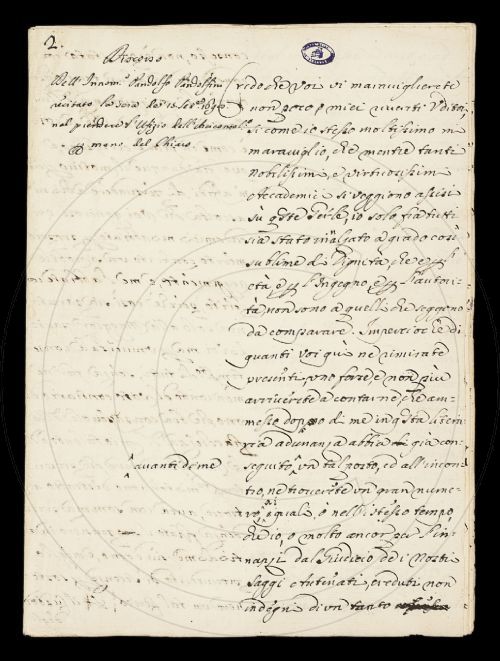 2.
Discorso
Dell' Innom.º Pandolfo Pandolfini
recitato la sera de
nel prendere l'Ufizio dell'
mano del Chiaro.
Credo che Voi vi maraviglierete
non poco miei riveriti Uditori,
si come io stesso moltissimo mi
maraviglio, che mentre tanti
Nobilissimi, e virtuosissimi
Accademici si veggiono assisi
su queste sedie, io solo fra tutti
sia stato inalzato a grado così
sublime di Dignità, che e
età, e l'Ingegno, e l'autori-
tà, non sono a quelli che seggono
da comparare. Imperciocchè di
quanti voi quì ne rimirate
presenti, uno forse, e non più
arriverete a contarne, che am-
messo dopo di me in questa
adunanza abbia già con-
seguito, un tal posto, ed all'incon-
avanti di me
tro, ne troverete un gran nume-
ro, i quali, o nell'istesso tempo
che io, o molto ancor in-
nanzi dal Giudicio de i Nostri
saggi creduti non
indegni di un tanto